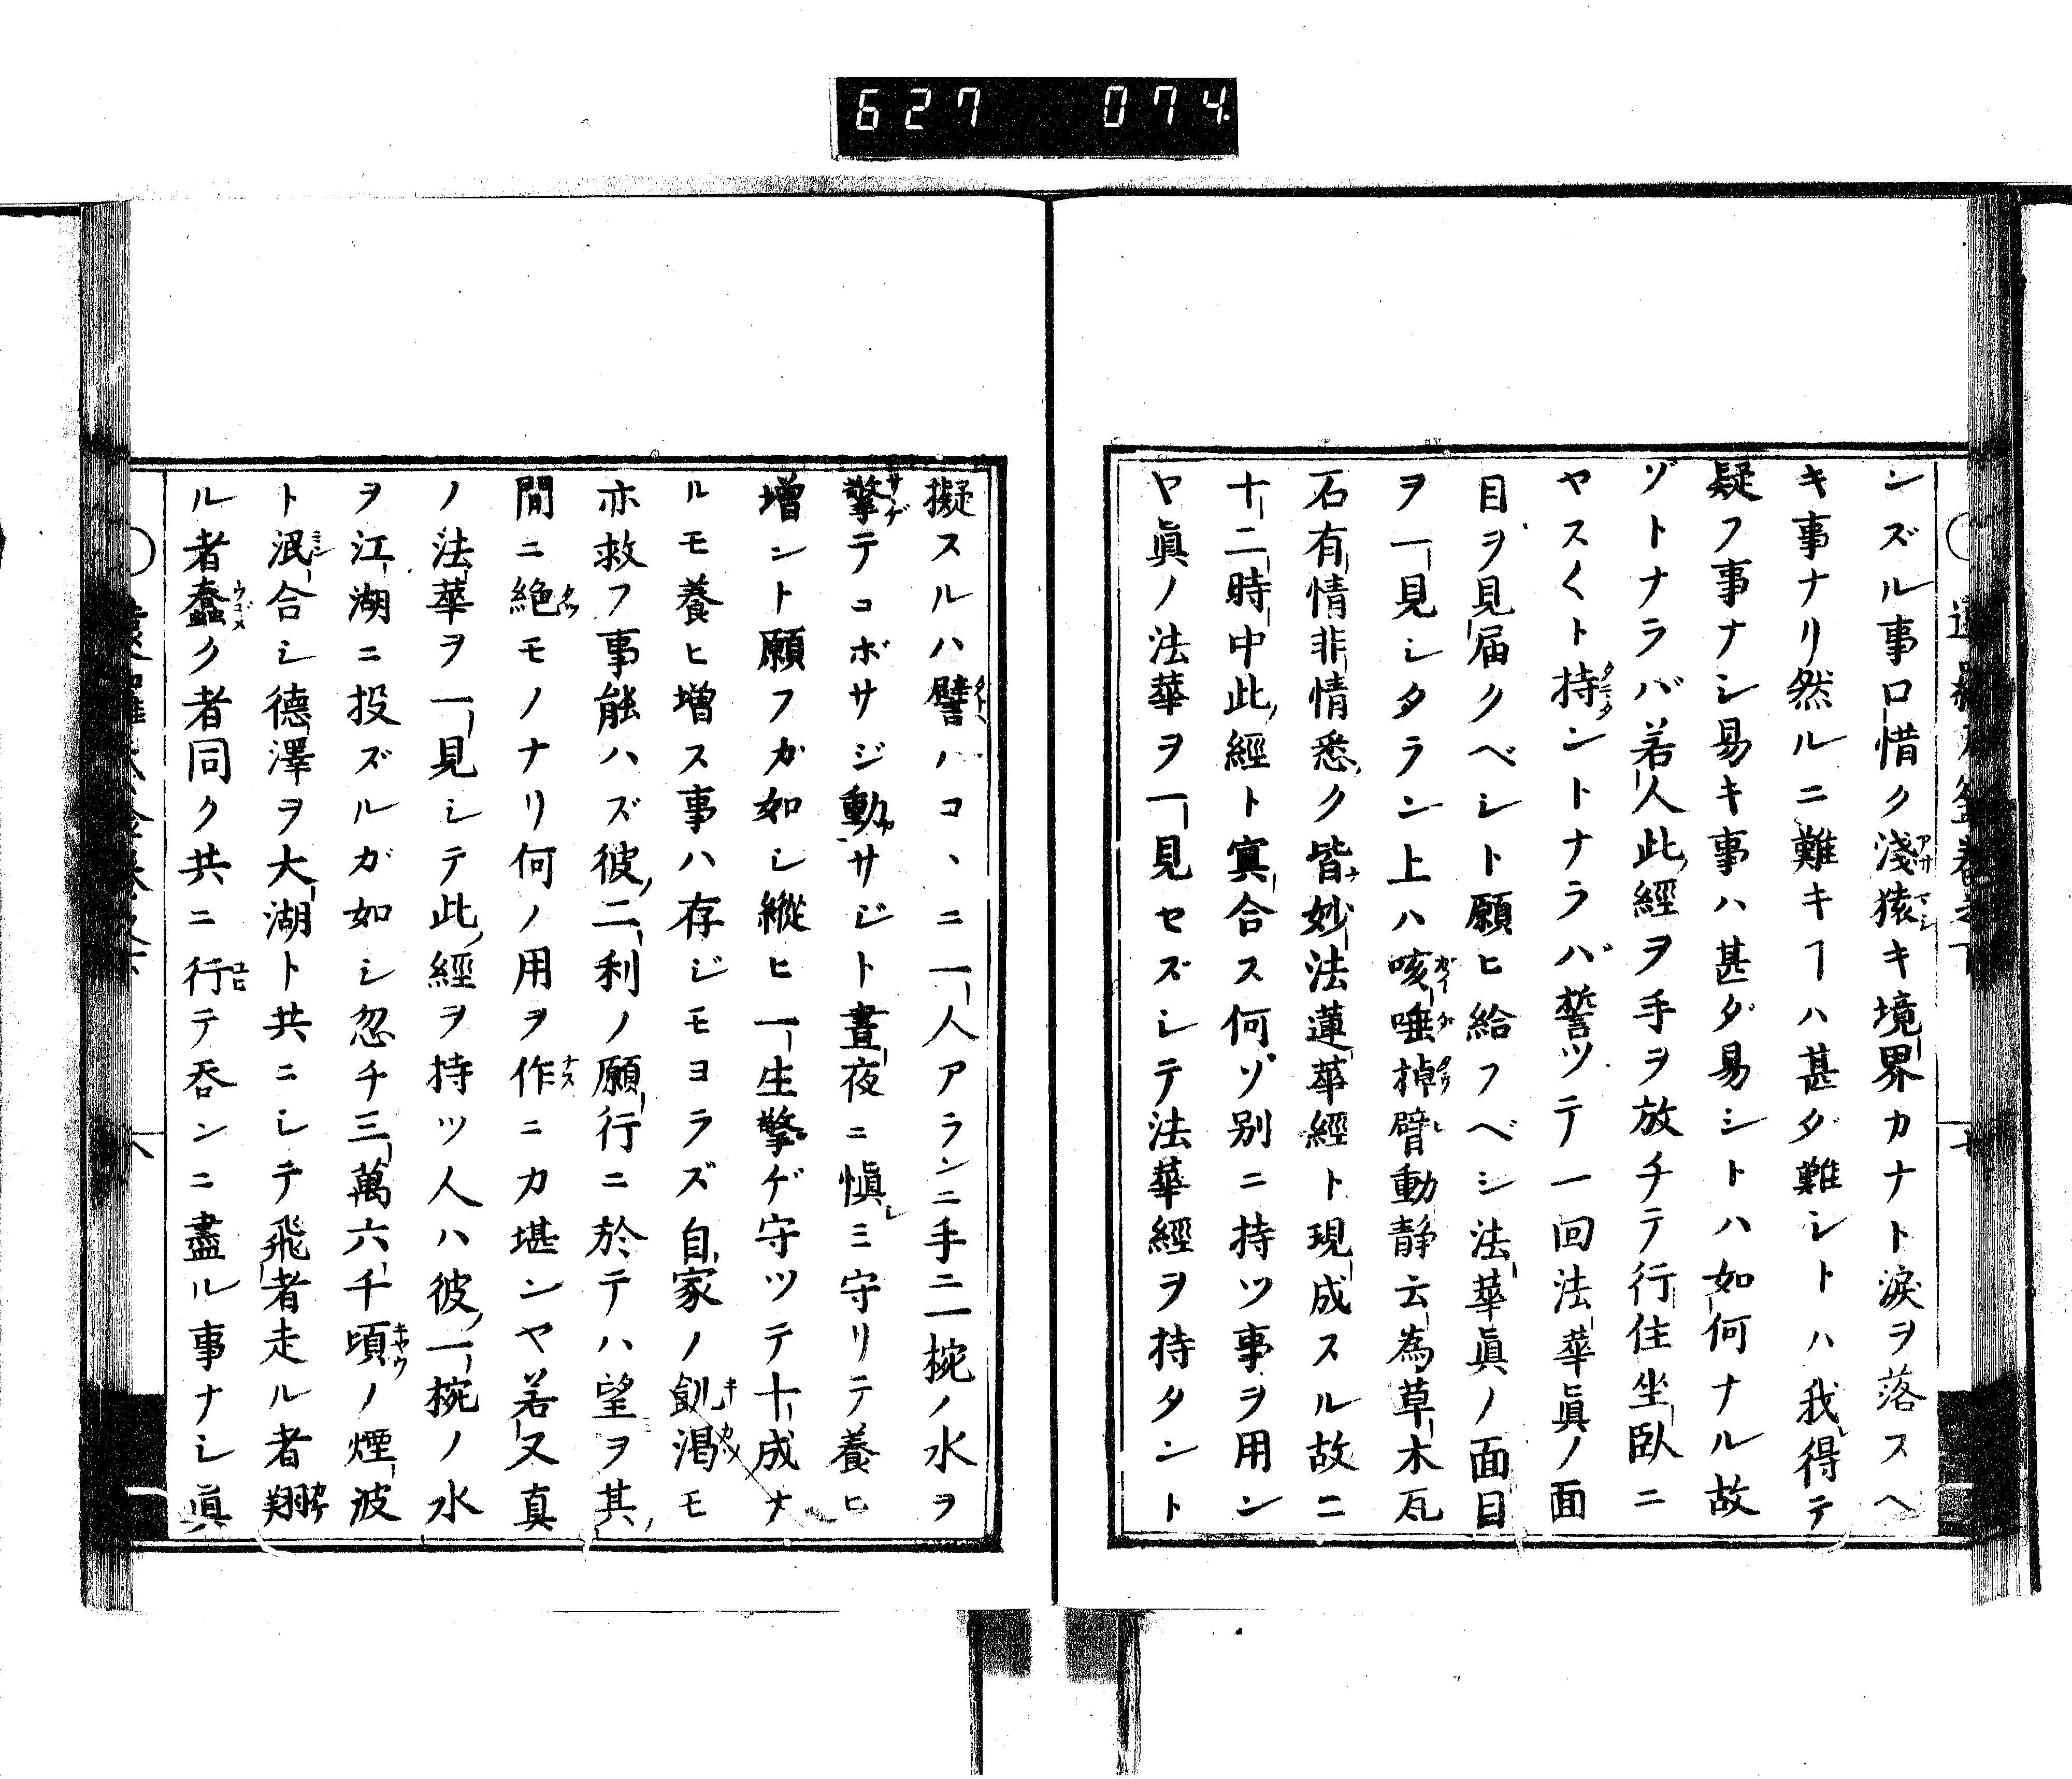 627 074
ンズル事口惜ク淺猿キ境界カナト淚ヲ落スヘ
キ事ナリ然ルニ難キヿハ甚タ難シトハ我得テ
疑フ事ナシ易キ事ハ甚ダ易シトハ如何ナル故
ゾトナラバ若人此經ヲ手ヲ放チテ行住坐臥ニ
ヤスくト持ントナラバ誓ツテ一回法華眞ノ面
目ヲ見届クベシト願ヒ給フベシ法華眞ノ面目
ヲ一見シタラン上ハ咳唾掉臂動静云為草木瓦
石有情非情悉ク皆妙法蓮華經ト現成スル故ニ
十二時中此經ト寘合ス何ゾ別ニ持ツ事ヲ用ン
ヤ眞ノ法華ヲ一見セズシテ法華經ヲ持タント
擬スルハ譬ハコヽニ一人アランニ手ニ一椀ノ水ヲ
擎テコボサジ動サジト晝夜ニ愼ミ守リテ養ヒ
增ント願フガ如シ縱ヒ一生擎ゲ守ツテ十成ナ
ルモ養ヒ增ス事ハ存ジモヨラズ自家ノ飢渴モ
亦救フ事能ハズ彼二利ノ願行ニ於テハ望ヲ其
間ニ絶モノナリ何ノ用ヲ作ニカ堪ンヤ若又真
ノ法華ヲ一見シテ此經ヲ持ツ人ハ彼一椀ノ水
ヲ江湖ニ投ズルガ如シ忽チ三萬六千頃ノ煙波
ト泯合シ德澤ヲ大湖ト共ニシテ飛者走ル者翔
ル者蠢ク者同ク共ニ行テ呑ンニ盡ル事ナシ眞